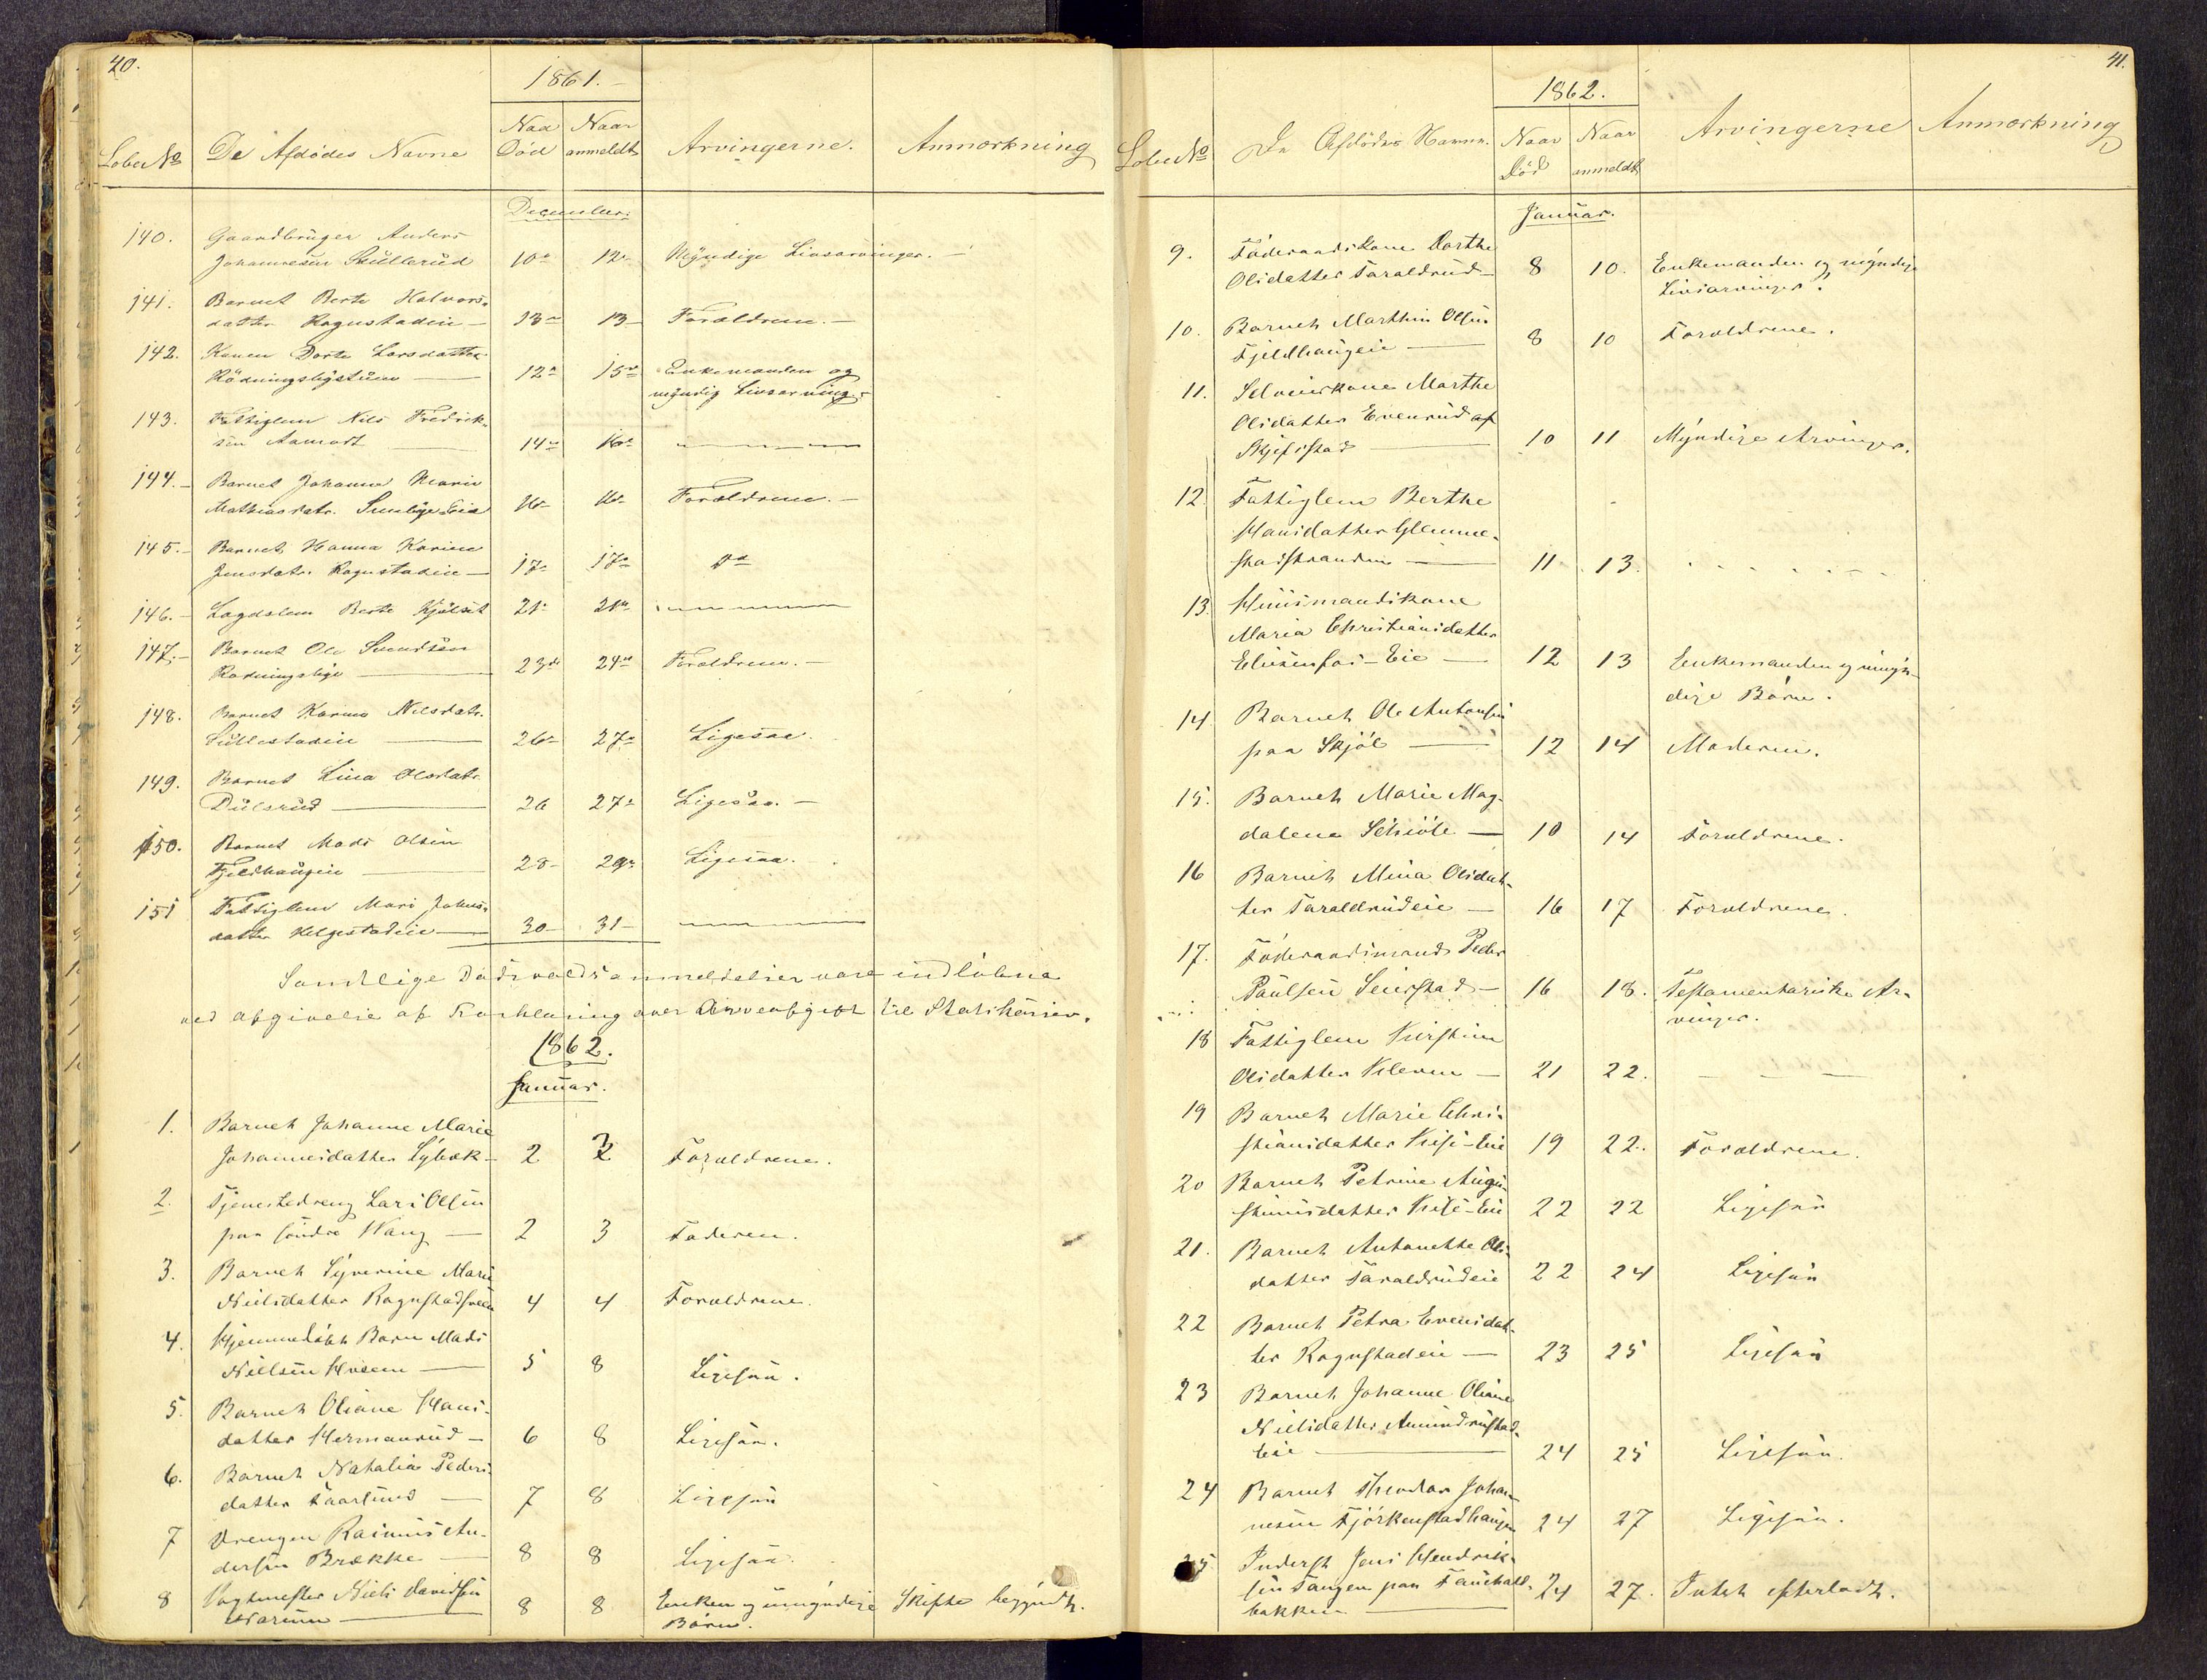 40.
1861.
Løbe No De Afdødes Navne Naar Død Naar anmeldt Arvingerne. Anmærkning
December.
140. Gaardbruger Anders
Johannesen Skullerud 10de 12te Myndige Livsarvinger.
141. Barnet Berte Halvors-
datter Ragnstadeie 13de 13 Forældrene.
142. Konen Dorte Larsdatter
Rödningslystuen 12te 15de Enkemanden og
myndig Livsarving.
143. Fattiglem Nils Fredrik-
sen Aamodt 14de 16de
144. Barnet Johanne Marie
Mathiasdatr. Eie 16 16 Forældrene.
145. Barnet Hanna Karine
Jensdatr. Ragnstadeie 17de 17de do
146. Lagdslem Berte Kjölset 21de 21de
147. Barnet Ole Svendsen
23de 24de Forældrene.
148. Barnet Karen Nilsdatr.
Lullestadeie 26de 27de Ligesaa.
149. Barnet Lina Olsdatr.
Dulsrud 26 27de Ligesaa.
150. Barnet Mads Olsen
Fjeldhaugeie 28 29de Ligesaa.
151 Fattiglem Mari Johns-
datter Helgestadeie 30 31
Samtlige Dødsfaldsanmeldelser vare indløbne
ved afgivelse af Forklaring over Arveafgift til Statskassen.
1862.
Januar.
1. Barnet Johanne Marie
Johannesdatter Lybæk 2 3 Forældrene.
2. Tjenestedreng Lars Olsen
paa søndre Wang 2 3 Faderen.
3. Barnet Syverine Marie
Nielsdatter 4 4 Forældrene.
4. Hjemmedøbt Barn Mads
Nielsen Hoem 5 8 Ligesaa.
5. Barnet Oliane Hans-
datter Hermanrud 6 8 Ligesaa.
6. Barnet Nathalia Peders-
datter Faarlund 7 8 Ligesaa
7 Drengen Rasmus An-
dersen Brække 8 8 Ligesaa.
8 Vagtmester Niels Davidsen
8 8 Enken og umyndige Skifte begyndt.
Børn.
41.
1862.
Løbe No De Afdødes Navne. Naar Død Naar anmeldt Arvingerne Anmærkning
Januar.
9. Föderaadskone Dorthe
Olsdatter Taraldrud 8 10. Enkemanden og myndige
Livsarvinger.
10. Barnet Marthin Olsen
Fjeldhaugeie 8 10 Forældrene.
11. Selveierkone Marthe
Olsdatter Evenrud af
Skjefstad 10 11 Myndige Arvinger.
12. Fattiglem Berthe
Hansdatter Glemme-
stadstranden 11 13.
13. Huusmandskone
Maria Christiansdatter
Eie 12 13 Enkemanden og myn-
dige Børn.
14 Barnet Ole Antonsen
paa Skjöl 12 14 Moderen.
15. Barnet Marie Mag-
dalena Schiöll 10 14 Forældrene.
16 Barnet Mina Olsdat-
ter Taraldrudeie 16 17 Forældrene.
17. Föderaadsmand Peder
Paulsen Seierstad 16 18. Testamentariske Ar-
vinger.
18 Fattiglem Kirstine
Olsdatter Kleven 21 22.
19 Barnet Marie Chri-
stiansdatter Kise-Eie 19 22. Forældrene.
20 Barnet Petrine Augu-
stinusdatter Kise-Eie 22 22 Ligesaa
21. Barnet Antonette Ols-
datter Taraldrudeie 22 24 Ligesaa
22 Barnet Petra Evensdat-
ter Ragnstadeie 23 25 Ligesaa
23 Barnet Johanne Oliane
Nielsdatter Amundrustad-
Eie 24 25 Ligesaa.
24 Barnet Theodor Johan-
nesen Fjörkenstadhaugen 24 27 Ligesaa.
25 Inderst Jens Hendrik-
sen Tangen paa
bakken 24 27. Intet efterladt.